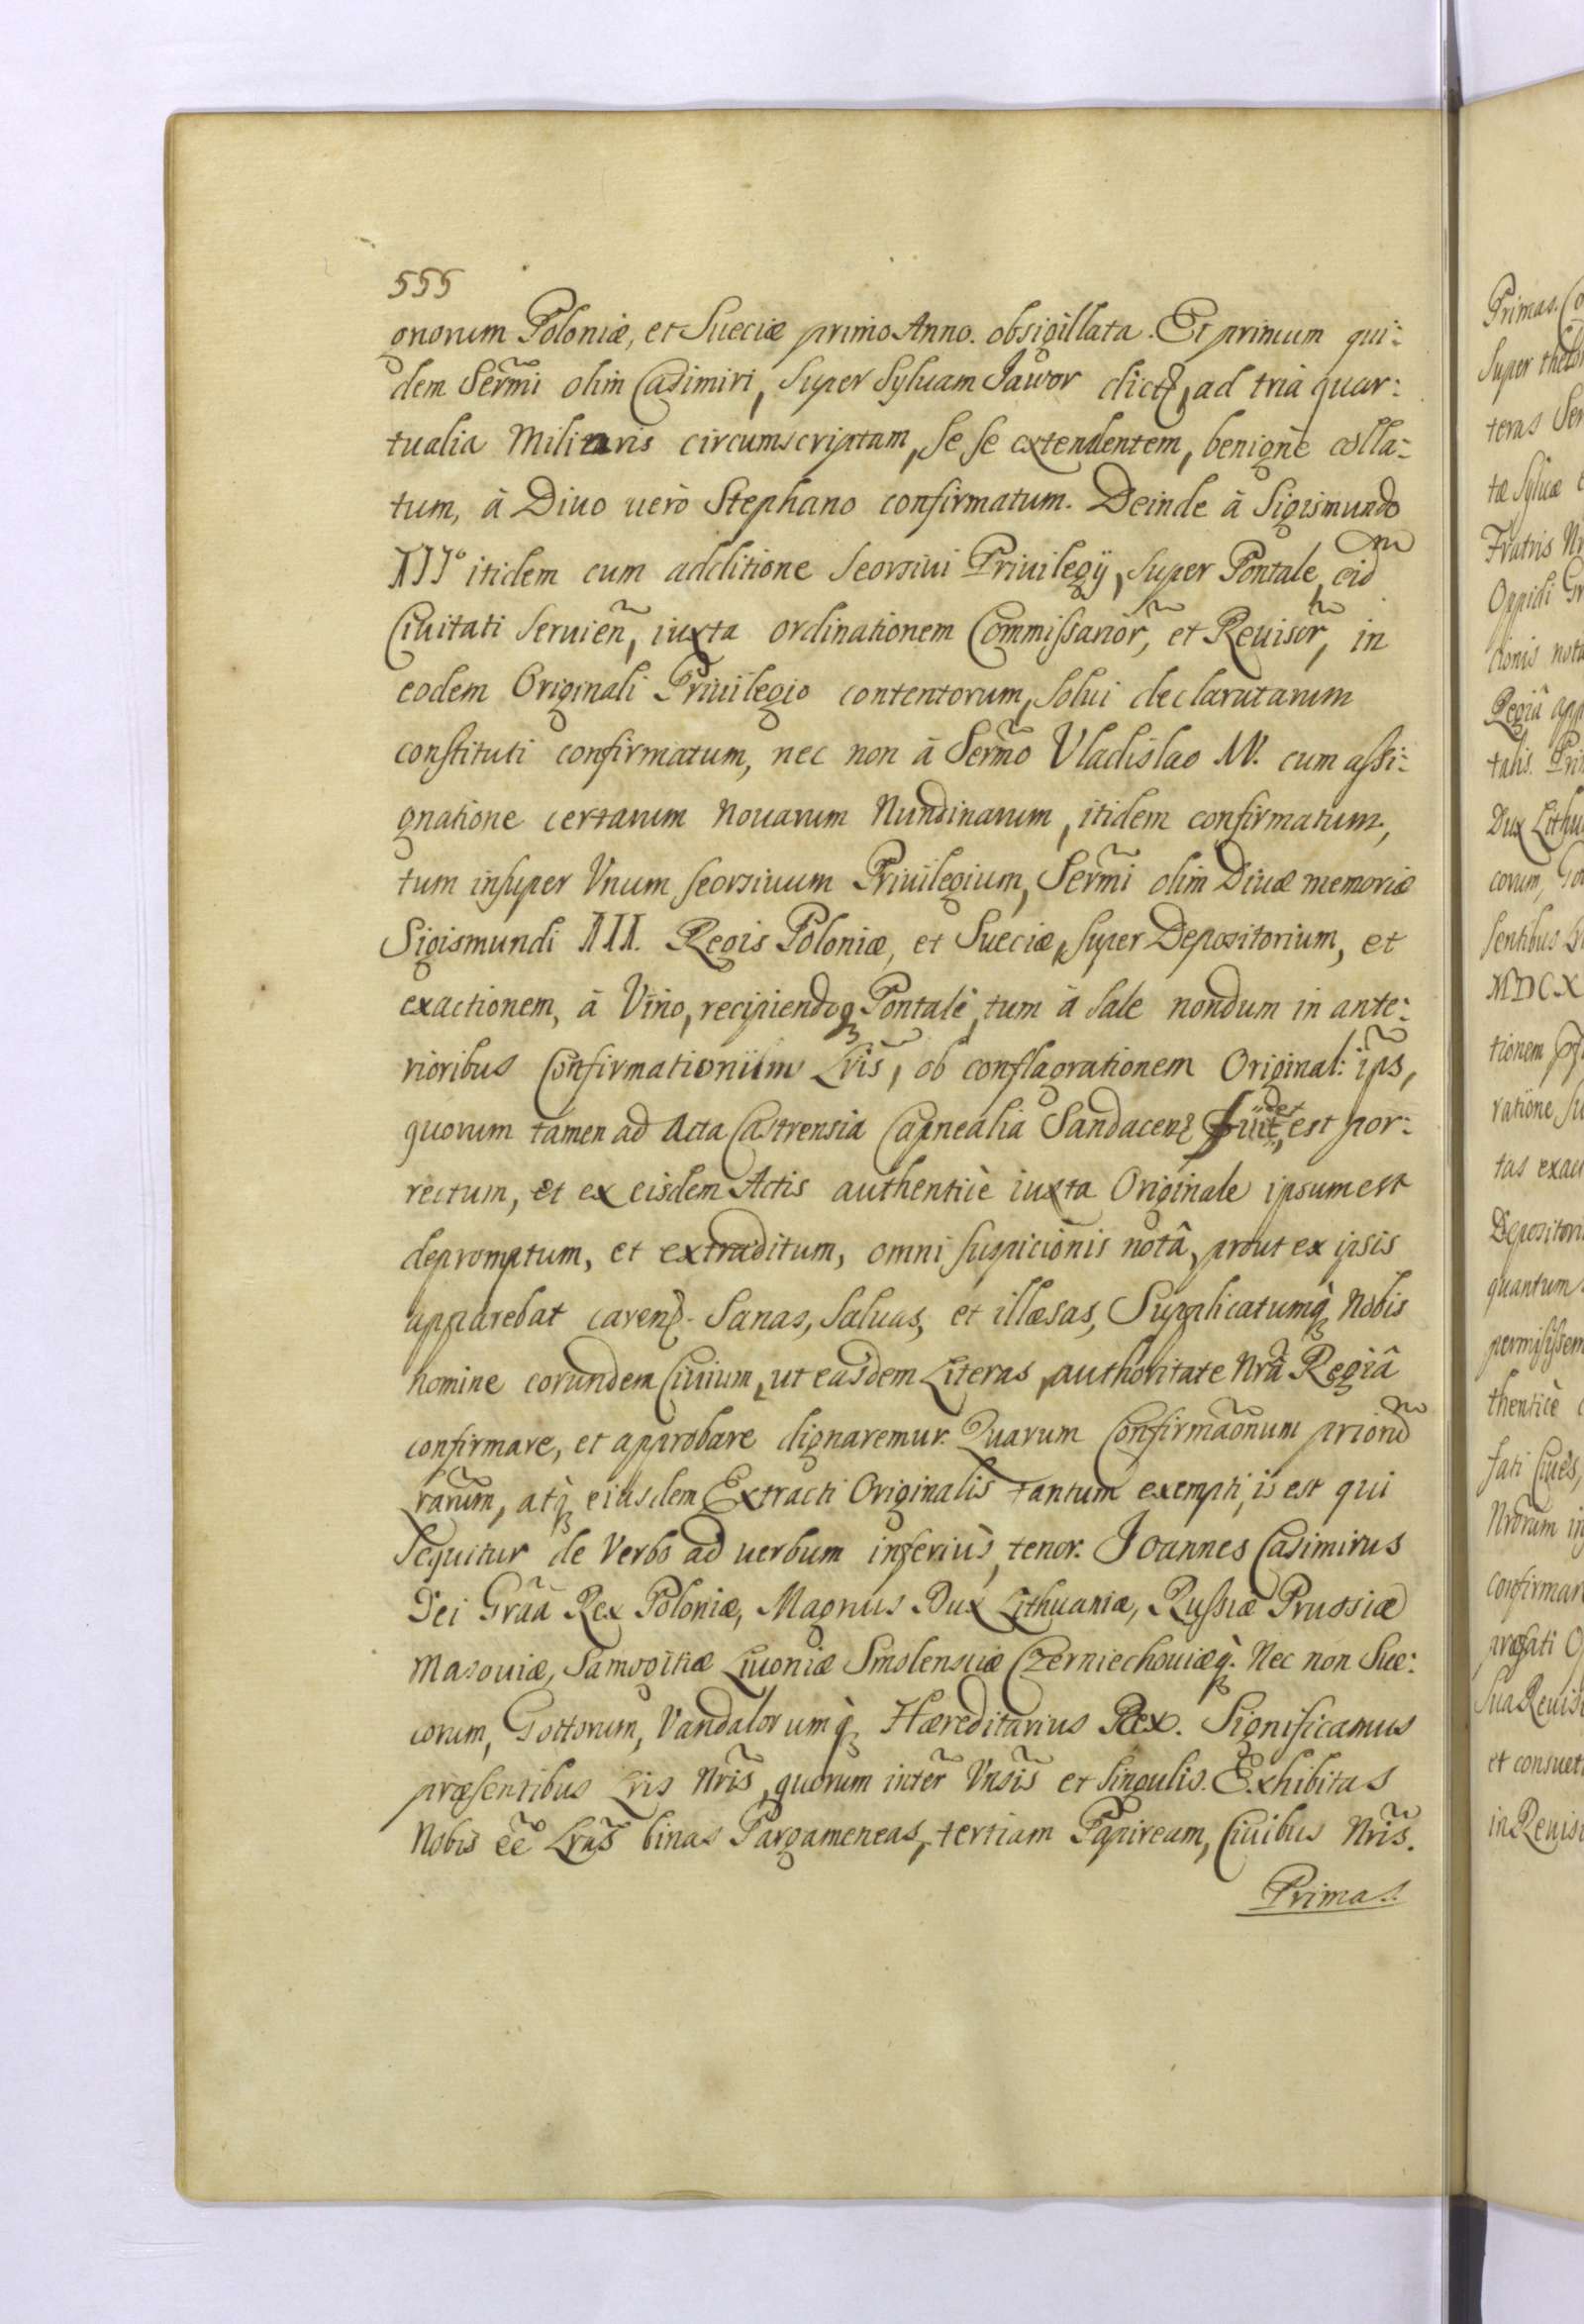 555
gnorum Poloniæ, et Sueciæ primo Anno. obsigillata. Et primum qui:
dem Serm̃i olim Casimiri, super Sylvam Jawor dictȝ, ad tria quar:
tualia Militaris circumscriptam, se se extendentem, benignè colla:
tum, à Diuo uerò Stephano confirmatum. Deinde à Sigismundo
III° itidem cum additione seorsiui Priuilegÿ, super Pontale, eid̃m
Ciuitati seruieñ, iuxta ordinationem Commissarior̃, et Reuisor̃, in
eodem Originali Priuilegio contentorum, solui declaratarum
constituti confirmatum, nec non à Serm̃o Vladislao IV. cum assi:
gnatione certarum Nouarum Nundinarum, itidem confirmatum,
tum insuper Vnum seorsiuum Priuilegium, Serm̃i olim Diuæ memoriæ
Sigismundi III. Regis Poloniæ, et Sueciæ, super Depositorium, et
exactionem, à Vino, recipiendoq Pontale, tum à sale nondum in ante:
rioribus Confirmationum Lris̃, ob conflagrationem Original: ips̃,
quorum tamen ad Acta Castrensia Capnealia Sandacenȝ est por:
rectum, et ex eisdem Actis authenticè iuxta Originale ipsum est
depromptum, et extraditum, omni suspicionis notâ, prout ex ipsis
apparebat carenȝ. Sanas, saluas, et illæsas, Supplicatumq̀ Nobis
homine eorundem Ciuium, ut easdem Literas, authoritate Nrâ Regiâ
confirmare, et approbare dignaremur. Quarum Confirmãonum priorũ
Lrarũm, atq̀ eiusdem Extracti Originalis tantum exempti, is est qui
sequitur de Verbo ad uerbum inferiùs, tenor. Joannes Casimirus
Dei Grãa Rex Poloniæ, Magnus Dux Lithuaniæ, Russiæ Prussiæ
Masouiæ, Samogitiæ Liuoniæ Smolensciæ Czerniechouiæq̀. Nec non Sue:
corum, Gottorum, Vandalorumq̀ Hæreditarius Rex. Significamus
præsentibus Lris Nris̃, quorum inter̃ Vnsis̃ et singulis. Exhibitas
Nobis ẽe Lrãs binas Pargameneas, tertiam Papiream, Ciuibus Nris̃.
Primas.
Primas.
super
teras
tæ Syluæ
Fratris
Oppidi
tionis
Regiâ
talis.
Dux
corum,
sentibus
MDCX
tionem
ratione
tas
quantum
thenticè
fati Ciues,
Nrorum in
præfati
Sua
et
in